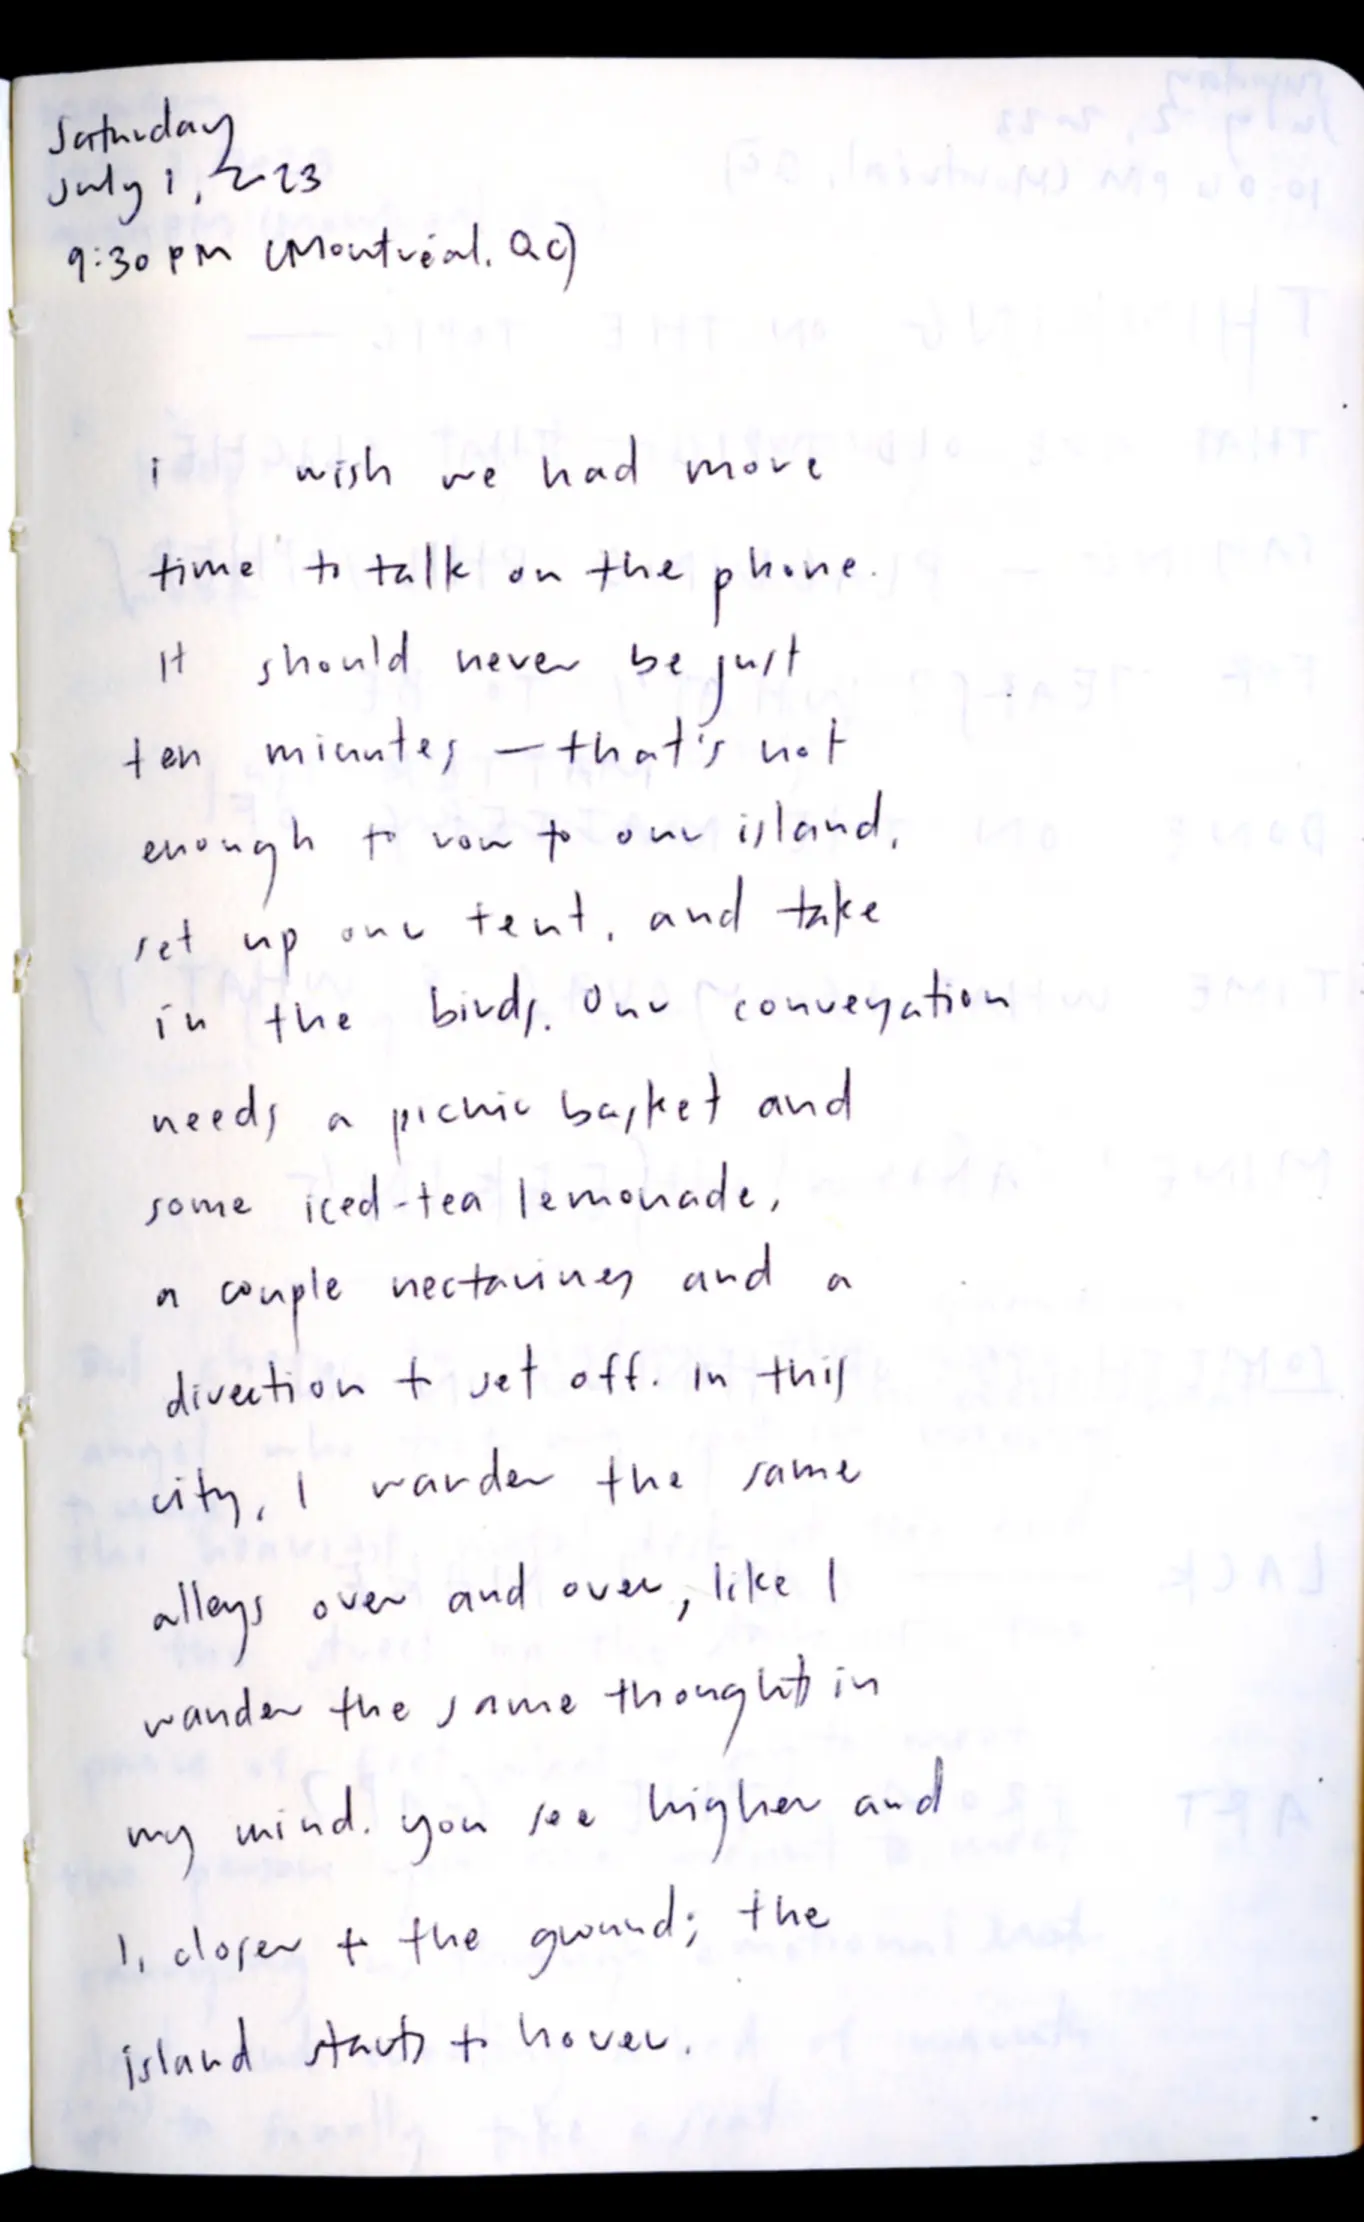 Saturday
July 1, 2023
9:30 PM (Montréal, QC)
i wish we had more
time to talk on the phone.
It should never be just
ten minutes — that's not
enough to row to our island,
set up our tent, and take
in the birds. Our conversation
needs a picnic basket and
some iced-tea lemonade,
a couple nectarines and a
direction to set off. In this
city, I wander the same
alleys over and over, like I
wander the same thoughts in
my mind. You see higher and
I, closer to the ground; the
island starts to hover.